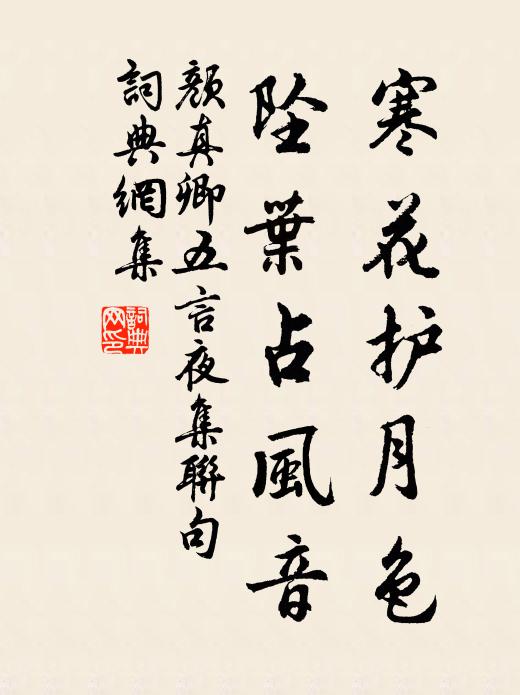 寒花护月色
坠葉占風音
顏真卿五言夜集聯句
詞典網集
詞典网印